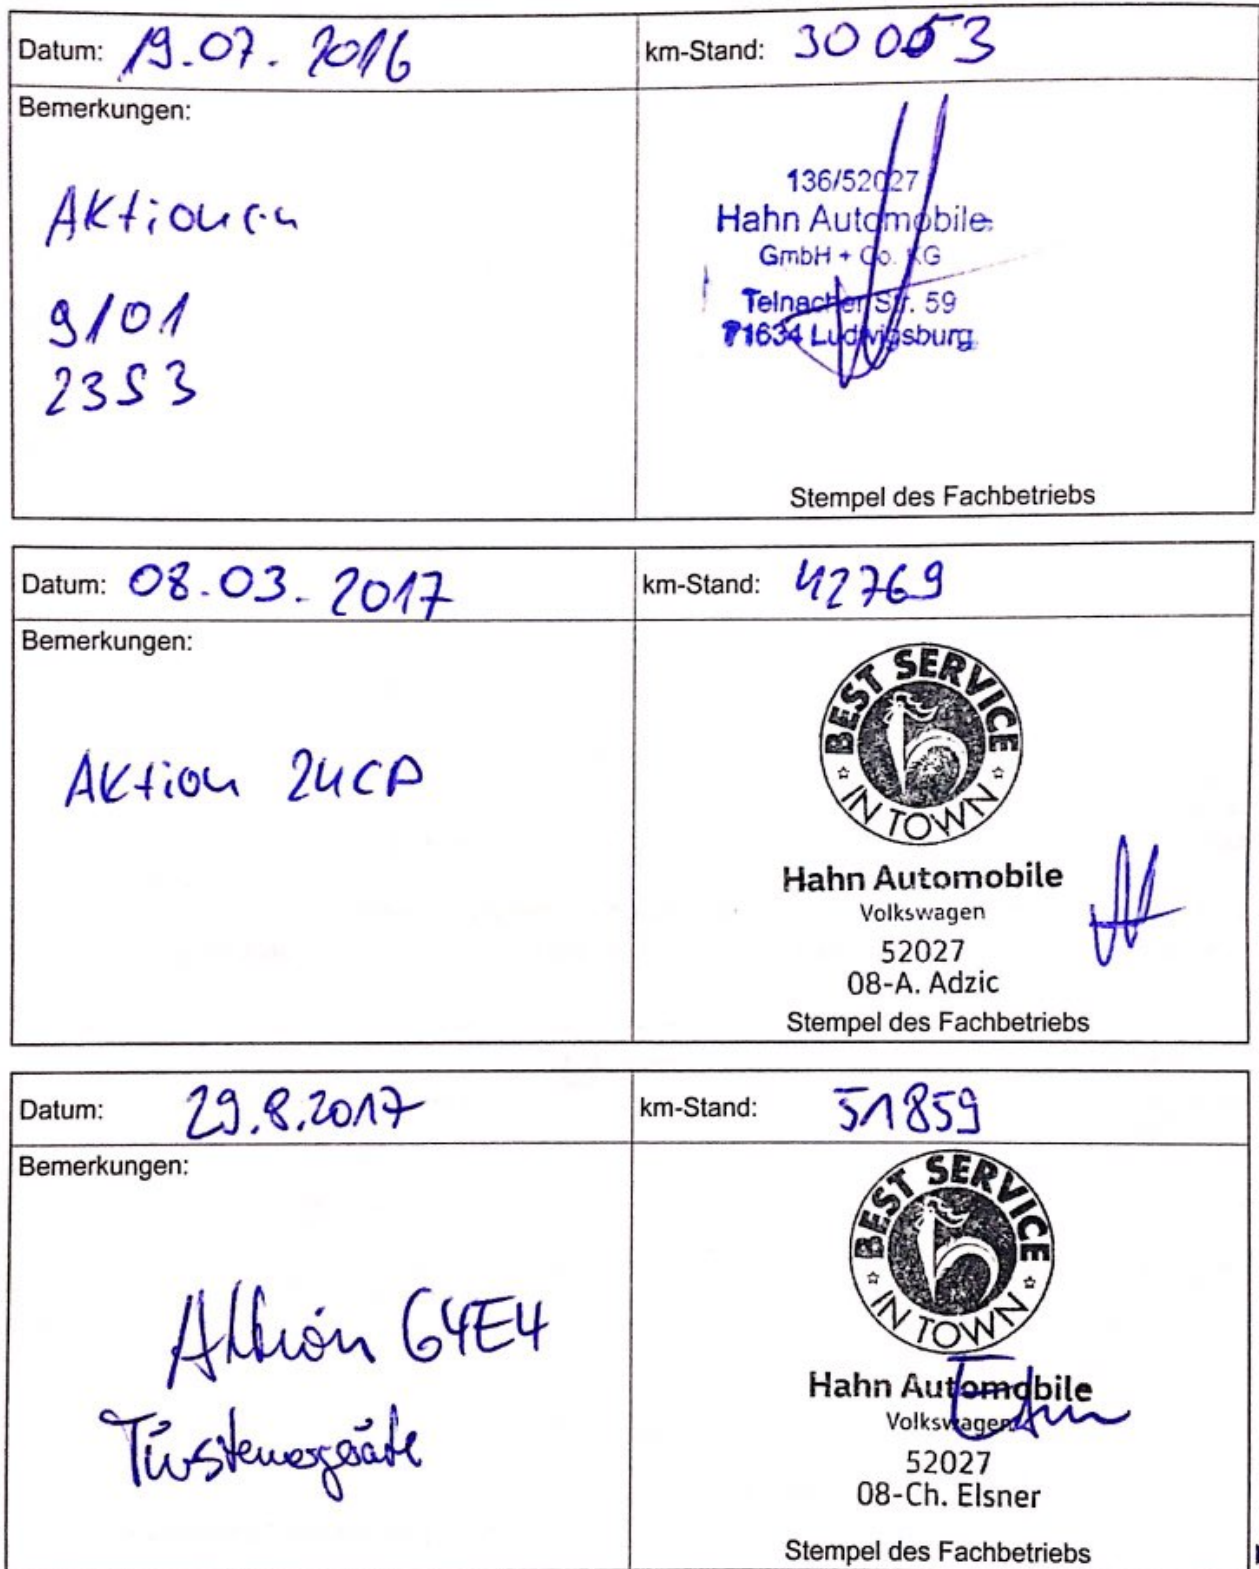 Datum: 19.07.2016
km-Stand: 30053
Bemerkungen:
Aktionen
9101
23S3
136/52027
Hahn Automobile
GmbH + Co. KG
Teinacher Str. 59
71634 Ludwigsburg
Stempel des Fachbetriebs
Datum: 08.03.2017
km-Stand: 42769
Bemerkungen:
Aktion 24CD
BEST SERVICE
IN TOWN
Hahn Automobile
Volkswagen
52027
08-A. Adzic
Stempel des Fachbetriebs
Datum: 29.8.2017
km-Stand: 51859
Bemerkungen:
Aktion G4E4
Türsteuergeräte
BEST SERVICE
IN TOWN
Hahn Automobile
Volkswagen
52027
08-Ch. Elsner
Stempel des Fachbetriebs